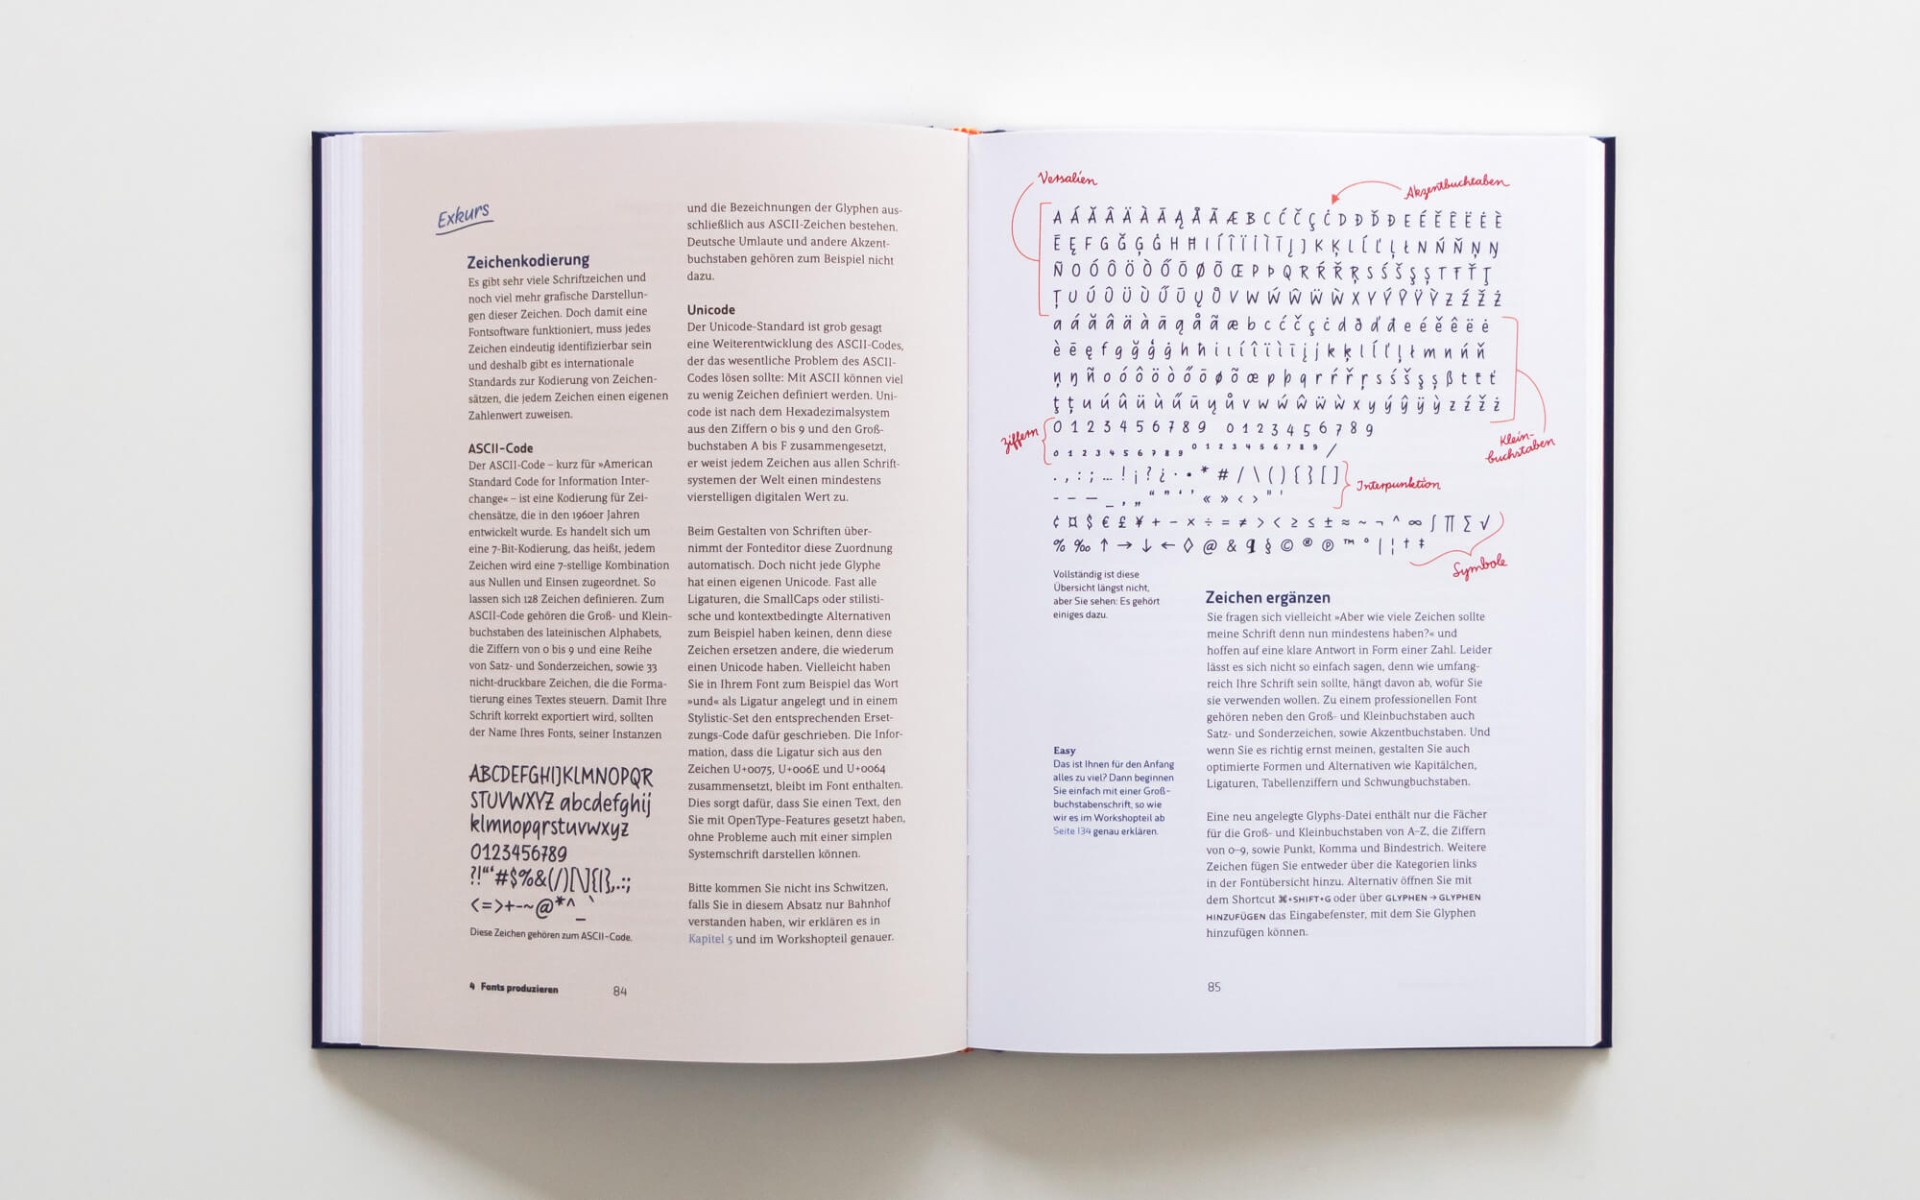 Exkurs
Zeichenkodierung
Es gibt sehr viele Schriftzeichen und
noch viel mehr grafische Darstellun-
gen dieser Zeichen. Doch damit eine
Fontsoftware funktioniert, muss jedes
Zeichen eindeutig identifizierbar sein
und deshalb gibt es internationale
Standards zur Kodierung von Zeichen-
sätzen, die jedem Zeichen einen eigenen
Zahlenwert zuweisen.
ASCII-Code
Der ASCII-Code – kurz für »American
Standard Code for Information Inter-
change« – ist eine Kodierung für Zei-
chensätze, die in den 1960er Jahren
entwickelt wurde. Es handelt sich um
eine 7-Bit-Kodierung, das heißt, jedem
Zeichen wird eine 7-stellige Kombination
aus Nullen und Einsen zugeordnet. So
lassen sich 128 Zeichen definieren. Zum
ASCII-Code gehören die Groß- und Klein-
buchstaben des lateinischen Alphabets,
die Ziffern von 0 bis 9 und eine Reihe
von Satz- und Sonderzeichen, sowie 33
nicht-druckbare Zeichen, die die Forma-
tierung eines Textes steuern. Damit Ihre
Schrift korrekt exportiert wird, sollten
der Name Ihres Fonts, seiner Instanzen
ABCDEFGHIJKLMNOPQR
STUVWXYZ abcdefghij
klmnopqrstuvwxyz
0123456789
?!"'#$%&(/)[\]{|},.:;
<=>+-~@*^_`
Diese Zeichen gehören zum ASCII-Code.
4 Fonts produzieren
84
und die Bezeichnungen der Glyphen aus-
schließlich aus ASCII-Zeichen bestehen.
Deutsche Umlaute und andere Akzent-
buchstaben gehören zum Beispiel nicht
dazu.
Unicode
Der Unicode-Standard ist grob gesagt
eine Weiterentwicklung des ASCII-Codes,
der das wesentliche Problem des ASCII-
Codes lösen sollte: Mit ASCII können viel
zu wenig Zeichen definiert werden. Uni-
code ist nach dem Hexadezimalsystem
aus den Ziffern 0 bis 9 und den Groß-
buchstaben A bis F zusammengesetzt,
er weist jedem Zeichen aus allen Schrift-
systemen der Welt einen mindestens
vierstelligen digitalen Wert zu.
Beim Gestalten von Schriften über-
nimmt der Fonteditor diese Zuordnung
automatisch. Doch nicht jede Glyphe
hat einen eigenen Unicode. Fast alle
Ligaturen, die SmallCaps oder stilisti-
sche und kontextbedingte Alternativen
zum Beispiel haben keinen, denn diese
Zeichen ersetzen andere, die wiederum
einen Unicode haben. Vielleicht haben
Sie in Ihrem Font zum Beispiel das Wort
»und« als Ligatur angelegt und in einem
Stylistic-Set den entsprechenden Erset-
zungs-Code dafür geschrieben. Die Infor-
mation, dass die Ligatur sich aus den
Zeichen U+0075, U+006E und U+0064
zusammensetzt, bleibt im Font enthalten.
Dies sorgt dafür, dass Sie einen Text, den
Sie mit OpenType-Features gesetzt haben,
ohne Probleme auch mit einer simplen
Systemschrift darstellen können.
Bitte kommen Sie nicht ins Schwitzen,
falls Sie in diesem Absatz nur Bahnhof
verstanden haben, wir erklären es in
Kapitel 5 und im Workshopteil genauer.
Versalien
Akzentbuchtaben
A Á Ă Â Ä À Ā Ą Å Ã Æ B C Ć Č Ç Ċ D Ð Ď Đ E É Ě Ê Ë Ė È
Ē Ę F G Ğ Ģ Ġ H Ħ I Í Î Ï İ Ì Ī Į J K Ķ L Í Ľ Ļ Ł N Ń Ň Ņ Ŋ
Ñ O Ó Ô Ö Ò Ő Ō Ø Õ Œ P Þ Q R Ŕ Ř Ŗ S Ś Š Ş Ș T Ŧ Ť Ţ
Ț U Ú Û Ü Ù Ű Ū Ų Ů V W Ẃ Ŵ Ẅ Ẁ X Y Ý Ŷ Ÿ Ỳ Z Ź Ž Ż
a á ă â ä à ā ą å ã æ b c ć č ç ċ d ð ď đ e é ě ê ë ė
è ē ę f g ğ ģ ġ h ħ i ı í î ï ì ī į j k ķ l ĺ ľ ļ ł m n ń ň
ņ ŋ ñ o ó ô ö ò ő ō ø õ œ p þ q r ŕ ř ŗ s ś š ş ș ß t ŧ ť
ţ ț u ú û ü ù ű ū ų ů v w ẃ ŵ ẅ ẁ x y ý ŷ ÿ ỳ z ź ž ż
Ziffern
0 1 2 3 4 5 6 7 8 9 0 1 2 3 4 5 6 7 8 9
0 1 2 3 4 5 6 7 8 9 0 1 2 3 4 5 6 7 8 9 /
Klein-
buchstaben
. , : ; … ! ¡ ? ¿ · • * # / \ ( ) { } [ ]
- – — _ ‚ „ “ ” ‘ ’ « » ‹ › " '
Interpunktion
¢ ¤ $ € £ ¥ + − × ÷ = ≠ > < ≥ ≤ ± ≈ ~ ¬ ^ ∞ ∫ ∏ ∑ √
% ‰ ↑ → ↓ ← ◊ @ & ¶ § © ® ℗ ™ ° | ¦ † ‡
Symbole
Vollständig ist diese
Übersicht längst nicht,
aber Sie sehen: Es gehört
einiges dazu.
Easy
Das ist Ihnen für den Anfang
alles zu viel? Dann beginnen
Sie einfach mit einer Groß-
buchstabenschrift, so wie
wir es im Workshopteil ab
Seite 134 genau erklären.
Zeichen ergänzen
Sie fragen sich vielleicht »Aber wie viele Zeichen sollte
meine Schrift denn nun mindestens haben?« und
hoffen auf eine klare Antwort in Form einer Zahl. Leider
lässt es sich nicht so einfach sagen, denn wie umfang-
reich Ihre Schrift sein sollte, hängt davon ab, wofür Sie
sie verwenden wollen. Zu einem professionellen Font
gehören neben den Groß- und Kleinbuchstaben auch
Satz- und Sonderzeichen, sowie Akzentbuchstaben. Und
wenn Sie es richtig ernst meinen, gestalten Sie auch
optimierte Formen und Alternativen wie Kapitälchen,
Ligaturen, Tabellenziffern und Schwungbuchstaben.
Eine neu angelegte Glyphs-Datei enthält nur die Fächer
für die Groß- und Kleinbuchstaben von A–Z, die Ziffern
von 0–9, sowie Punkt, Komma und Bindestrich. Weitere
Zeichen fügen Sie entweder über die Kategorien links
in der Fontübersicht hinzu. Alternativ öffnen Sie mit
dem Shortcut ⌘+SHIFT+G oder über GLYPHEN → GLYPHEN
HINZUFÜGEN das Eingabefenster, mit dem Sie Glyphen
hinzufügen können.
85